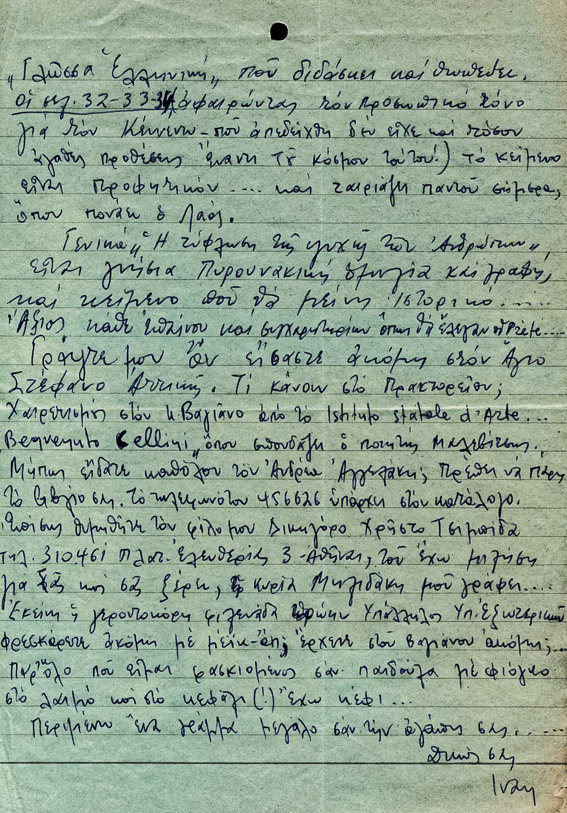 „Γλῶσσα Ἑλληνική„ ποῦ διδάσκει καὶ
οἱ σελ. 32-33-34 ἀφαιρώντας τὸν προσωπικὸ τόνο
γιὰ τὸν Κέννεντυ - ποῦ ἀπεδείχθη δὲν εἶχε καὶ τόσον
ἀγαθὲς προθέσεις ἔναντι τοῦ κόσμου τούτου!) τὸ κείμενο
εἶναι προφητικόν .... καὶ ταιριάζει παντοῦ σήμερα,
ὅπου πονάει ὁ λαός.
Γενικά „Ἡ τύφλωση τῆς ψυχῆς τῶν Ἀνθρώπων„
εἶναι γνήσια Πυρουνακική ὁμιλία καὶ γραφή,
καὶ κείμενο ποῦ θὰ μείνη ἱστορικό .....
Ἄξιος κάθε ἐπαίνου καὶ συγχαρητηρίων ὅπως θὰ ἔλεγαν
Γράψτε μου ἂν εἴσαστε ἀκόμη στὸν Ἅγιο
Στέφανο Ἀττικῆς. Τί κάνουν στὸ Πρακτορεῖον;
Χαιρετισμός στὸν κ Βαγιάνο ἀπὸ τὸ Istituto statale d'Arte...
Benvenuto Cellini„ ὅπου σπουδάζει ὁ ποιητὴς Μαλεβίτσης.
Μήπως εἴδατε καθόλου τὸν Ἀνδρέα Ἀγγελάκη; πρέπει νὰ πάρη
τὸ βιβλίο σας. Τὸ τηλέφωνό του 456626 ὑπάρχει στὸν κατάλογο.
Ἐπίσης θυμηθῆτε τὸν φίλο μου Δικηγόρο Χρῆστο
τηλ. 310461 πλατ. Ἐλευθερίας 3 - Ἀθῆναι, τοῦ ἔχω μιλήσει
γιὰ σᾶς καὶ σᾶς ξέρει, ἡ κυρία Μιχιδάκη μοῦ γράφει....
Ἐκείνη ἡ γεροντοκόρη φιλενάδα πρώην Ὑπάλληλος Ὑπ. Ἐξωτερικῶν
φρεσκάρεται ἀκόμη μὲ μέικ-ἄπ; ἔρχεται στοῦ Βαγιάνου ἀκόμη;...
Παρ' ὅλο ποῦ εἶμαι φασκιομένος σὰν παιδούλα μὲ φιόγκο
στὸ λαιμό καὶ στὸ κεφάλι (!) ἔχω κέφι ...
Περιμένω ἕνα γράμμα μεγάλο σὰν τὴν ἀγάπη σας......
Δικός σας